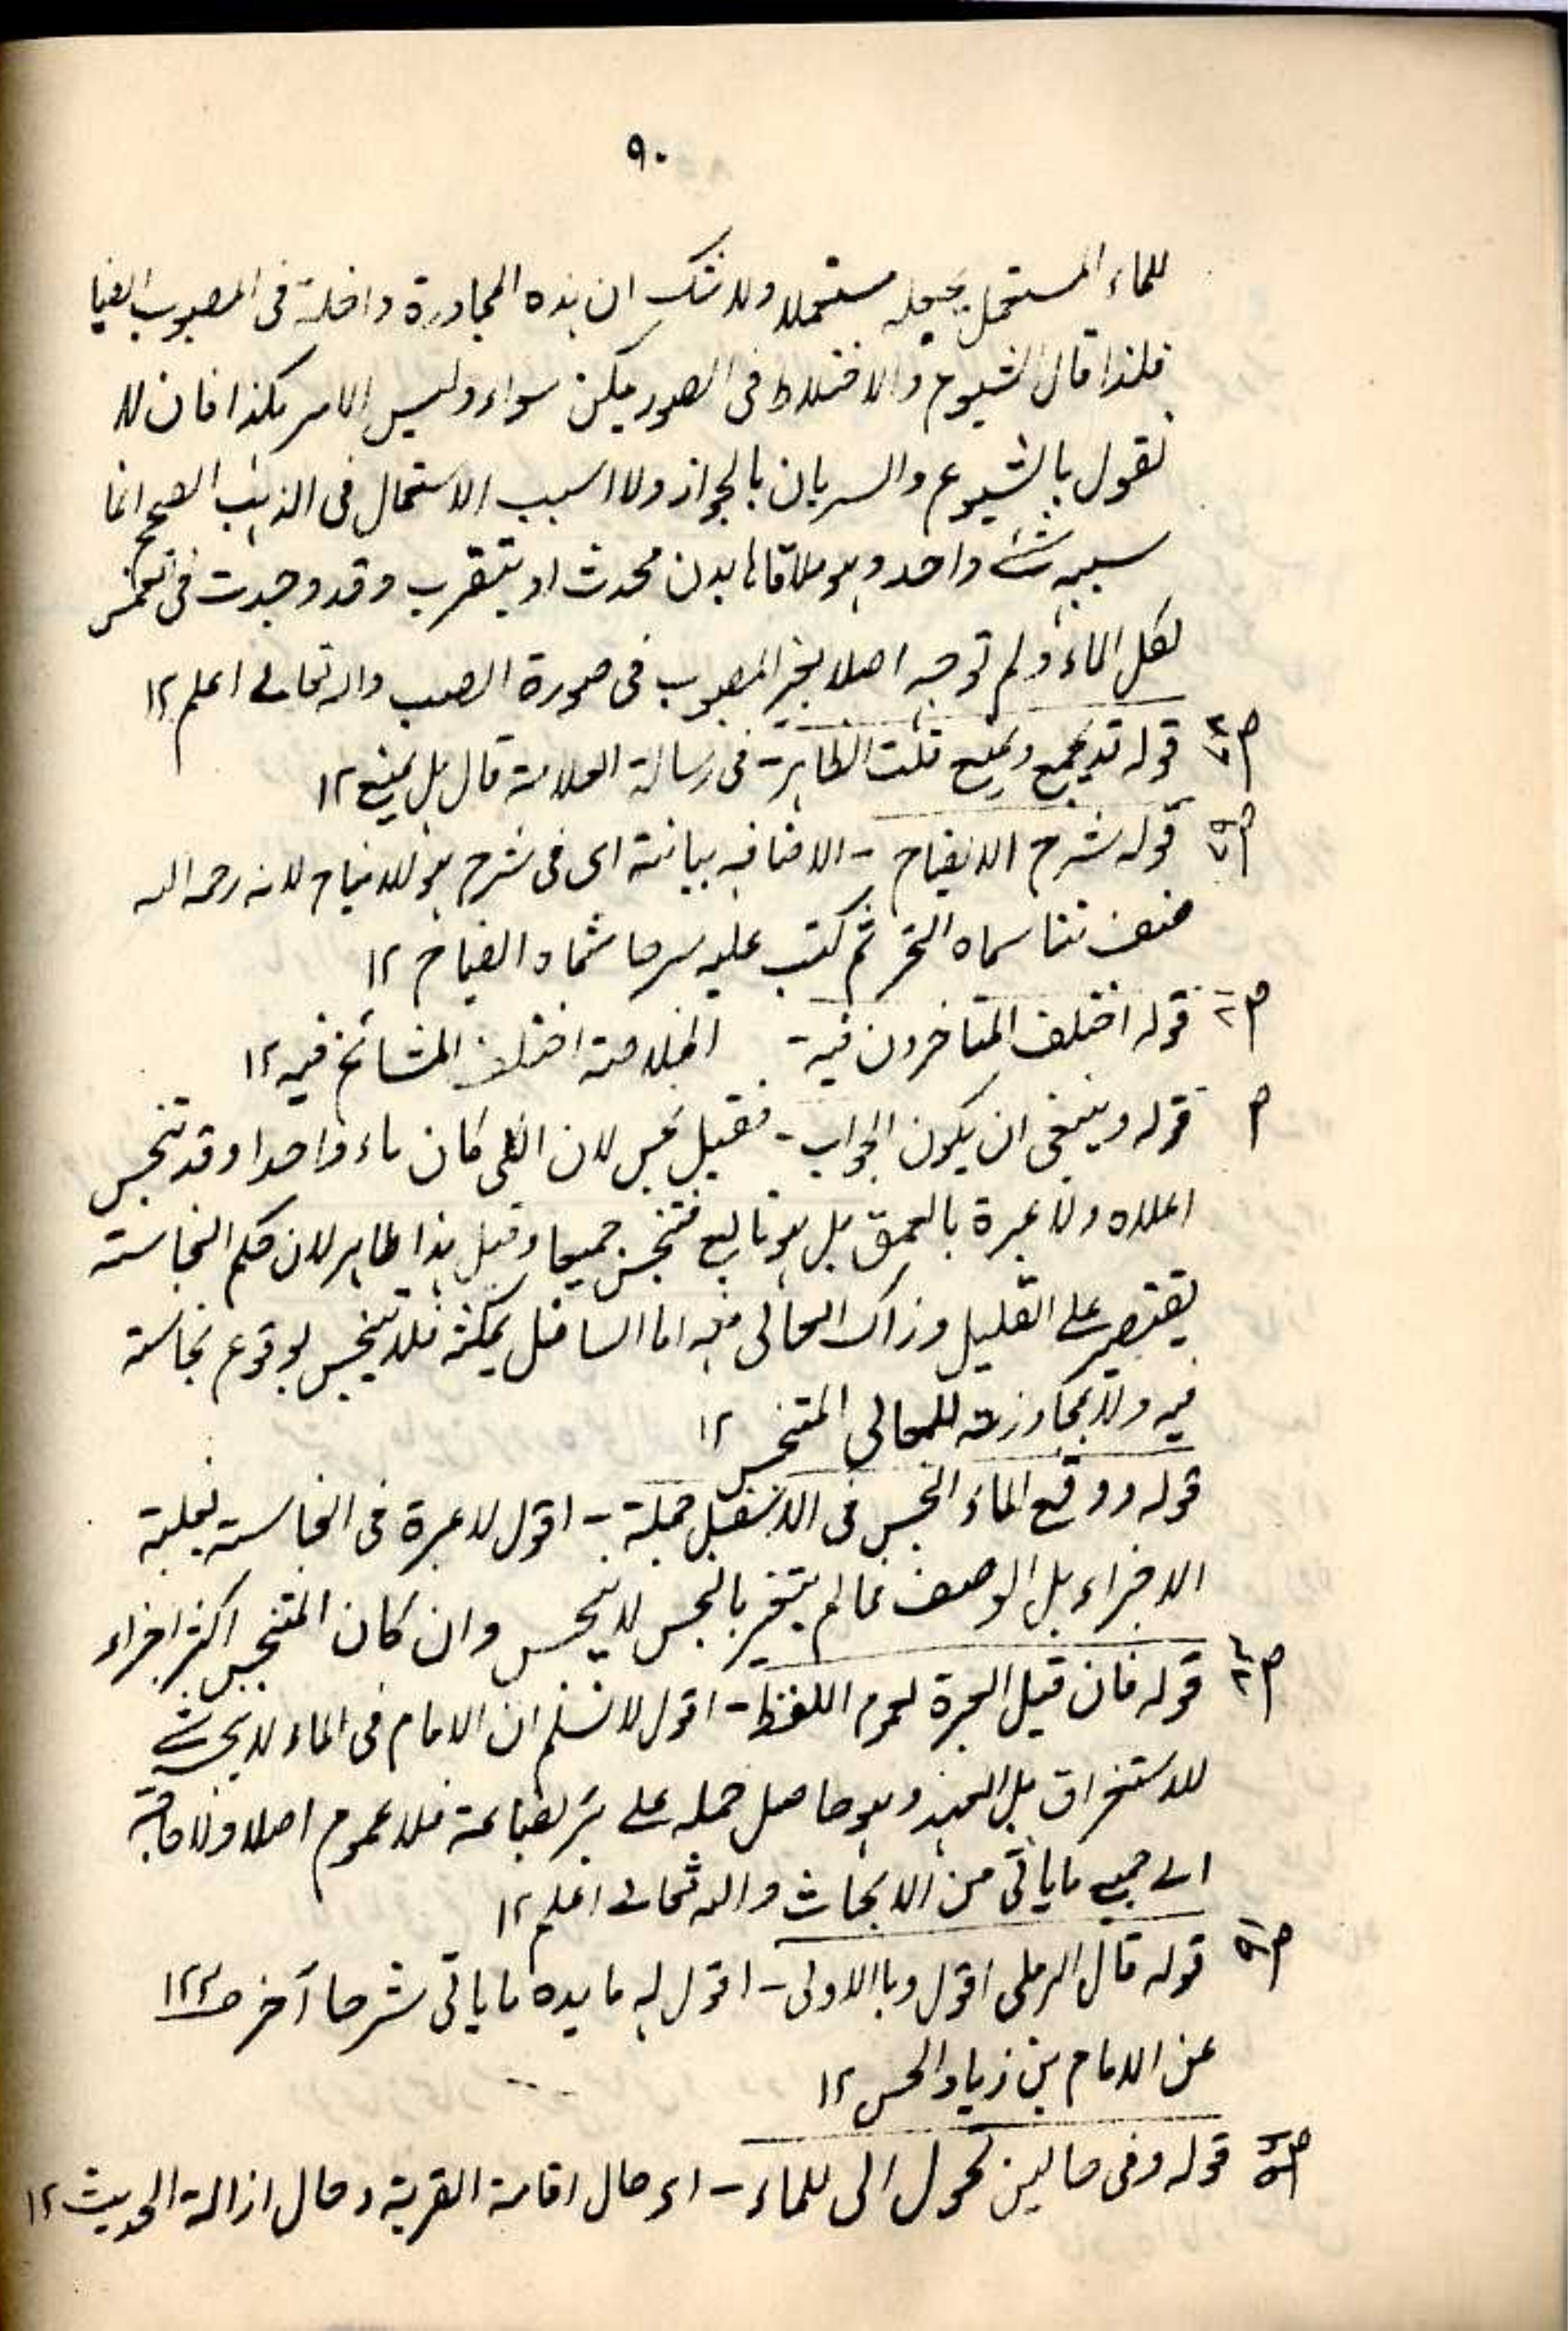 ٩٠
للماء المستعمل يجعله مستعملا ولا شك ان هذه المجاورة داخلة فى المصبوب ايضا
فلذا قال الشيوع والاختلاط فى الصورتين سواء وليس الامر هكذا فان لا
نقول بالشيوع والسريان بالجواز ولا سبب الاستعمال فى المذهب الصحيح انما
سببه شئ واحد وهو ملاقاة بدن محدث او يتقرب وقد وجدت فى
لكل الماء ولم توجد اصلا لغير المصبوب فى صورة الصب والله تعالى اعلم ١٢
قوله قد يجمع ويمنع قلت الظاهر- فى رسالة العلامة قال بل يمنع ١٢
قوله شرح الايضاح - الاضافه بيانية اى فى شرح هو الايضاح لانه رحمه الله
صنف متنا سماه ثم كتب عليه شرحا سماه ايضاح ١٢
قوله اختلف المتاخرون فيه - الخلاصة اختلف المشائخ فيه ١٢
م قوله وينبغى ان يكون الجواب - فقيل نجس لان الكل كان ماء واحدا وقد تنجس
اعلاه ولا عبرة بالعمق بل هو تابع فتنجس جميعا وقيل هذا طاهر لان حكم النجاسة
يقتصر على القليل وذاك العالى منه اما السافل فلا يتنجس لوقوع نجاسة
فيه ولا بمجاورته للعالى المتنجس ١٢
قوله ووقع الماء النجس فى الاسفل جملة - اقول لا عبرة فى النجاسة بغلبة
الاجزاء بل الوصف فما لم يتغير بالنجس لا ينجس وان كان المتنجس اكثر اجزاء
قوله فان قيل العبرة لعموم اللفظ - اقول لا نسلم ان اللام فى الماء لا ينجسه شئ
للاستغراق بل للعهد وهو حاصل حمله على بئر بضاعة فلا عموم اصلا ولا حاجة
الى جميع ما ياتى من الابحاث والله تعالى اعلم ١٢
قوله قال الرملى اقول وبالاولى - اقول له ما ياتى شرحا آخر ص ١٢٢
عن الامام بن زياد الحسن ١٢
قوله وفى حالين الى للماء - اى حال اقامة القربة وحال ازالة الحديث ١٢